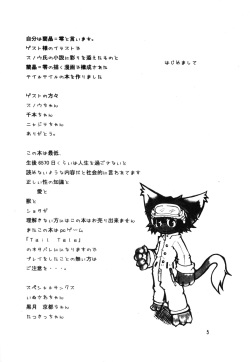 はじめまして
自分は葉晶＝零と言います。
ゲスト様のイラストや
スノウ氏の小説に彩りを添えたものと
葉晶＝零の描く漫画で構成された
テイルテイルの本を作りました
ゲストの方々
スノウちゃん
千本ちゃん
こャどうちゃん
ありがとう。
この本は最低、
生後6570日くらいは人生を過ごさないと
読めないような内容だと社会的に言われてます
正しい性の知識と
愛と
獣と
ショタが
理解できない方にはこの本はお売り出来ません
またこの本はpcゲーム
「Tail Tale」
のネタバレになりますので
プレイをしたことの無い方は
ご注意を・・・。
スペシャルサンクス
いぬかわちゃん
風月 涼都ちゃん
たっきっちゃん
5